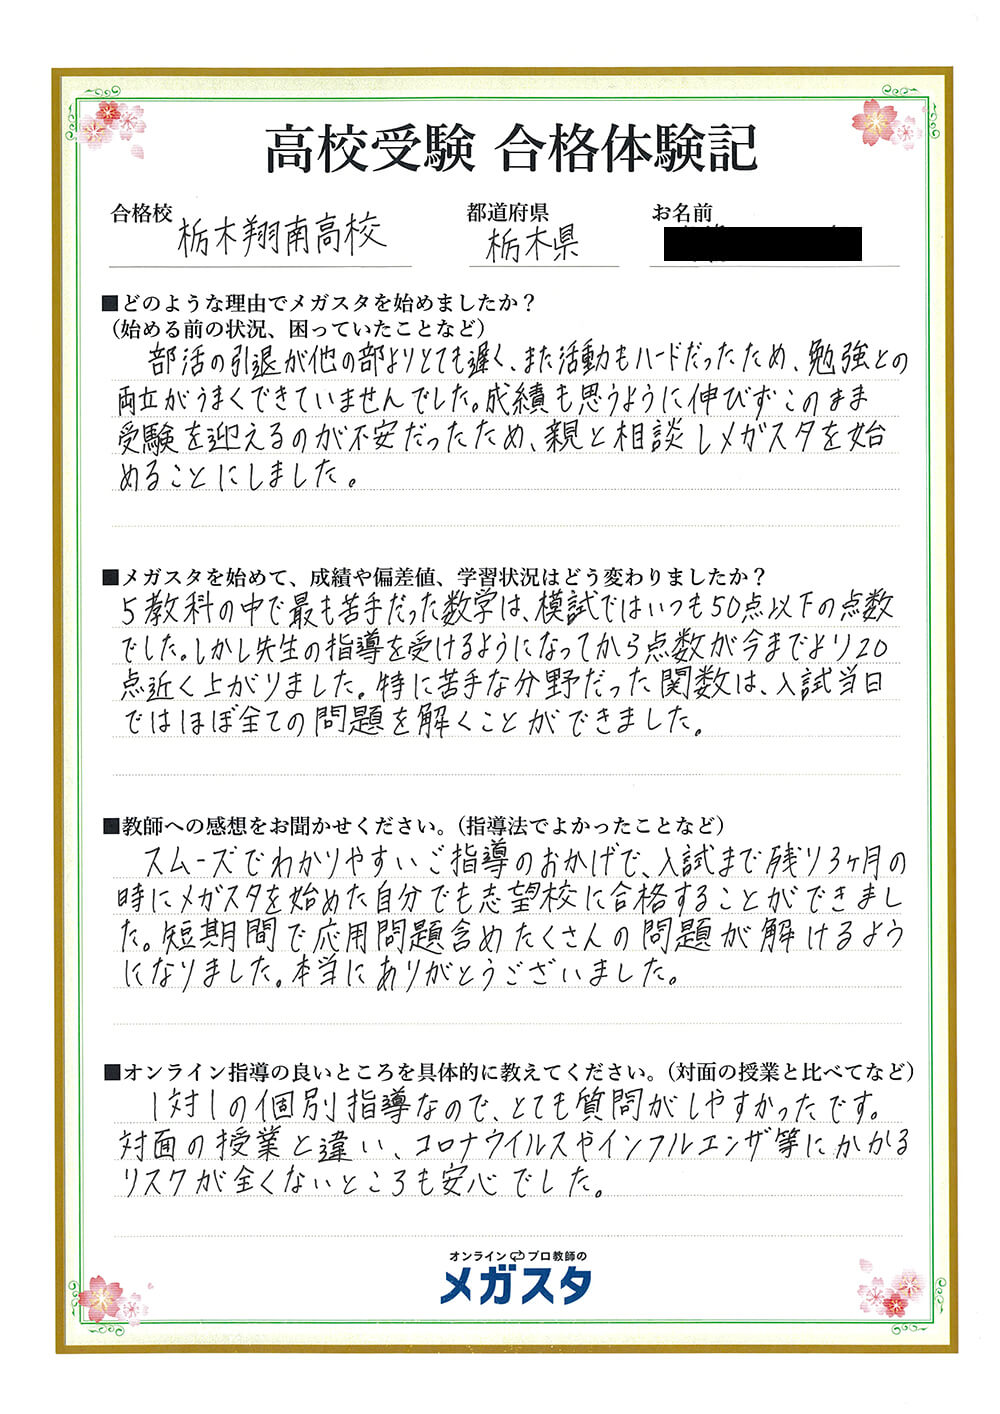 高校受験 合格体験記
合格校 栃木翔南高校 都道府県 栃木県 お名前
■どのような理由でメガスタを始めましたか？
（始める前の状況、困っていたことなど）
部活の引退が他の部よりとても遅く、また活動もハードだったため、勉強との
両立がうまくできていませんでした。成績も思うように伸びずこのまま
受験を迎えるのが不安だったため、親と相談しメガスタを始
めることにしました。
■メガスタを始めて、成績や偏差値、学習状況はどう変わりましたか？
5教科の中で最も苦手だった数学は、模試ではいつも50点以下の点数
でした。しかし先生の指導を受けるようになってから点数が今までより20
点近く上がりました。特に苦手な分野だった関数は、入試当日
ではほぼ全ての問題を解くことができました。
■教師への感想をお聞かせください。（指導法でよかったことなど）
スムーズでわかりやすいご指導のおかげで、入試まで残り3ヶ月の
時にメガスタを始めた自分でも志望校に合格することができまし
た。短期間で応用問題含めたくさんの問題が解けるよう
になりました。本当にありがとうございました。
■オンライン指導の良いところを具体的に教えてください。（対面の授業と比べてなど）
1対1の個別指導なので、とても質問がしやすかったです。
対面の授業と違い、コロナウイルスやインフルエンザ等にかかる
リスクが全くないところも安心でした。
オンライン プロ教師の
メガスタ